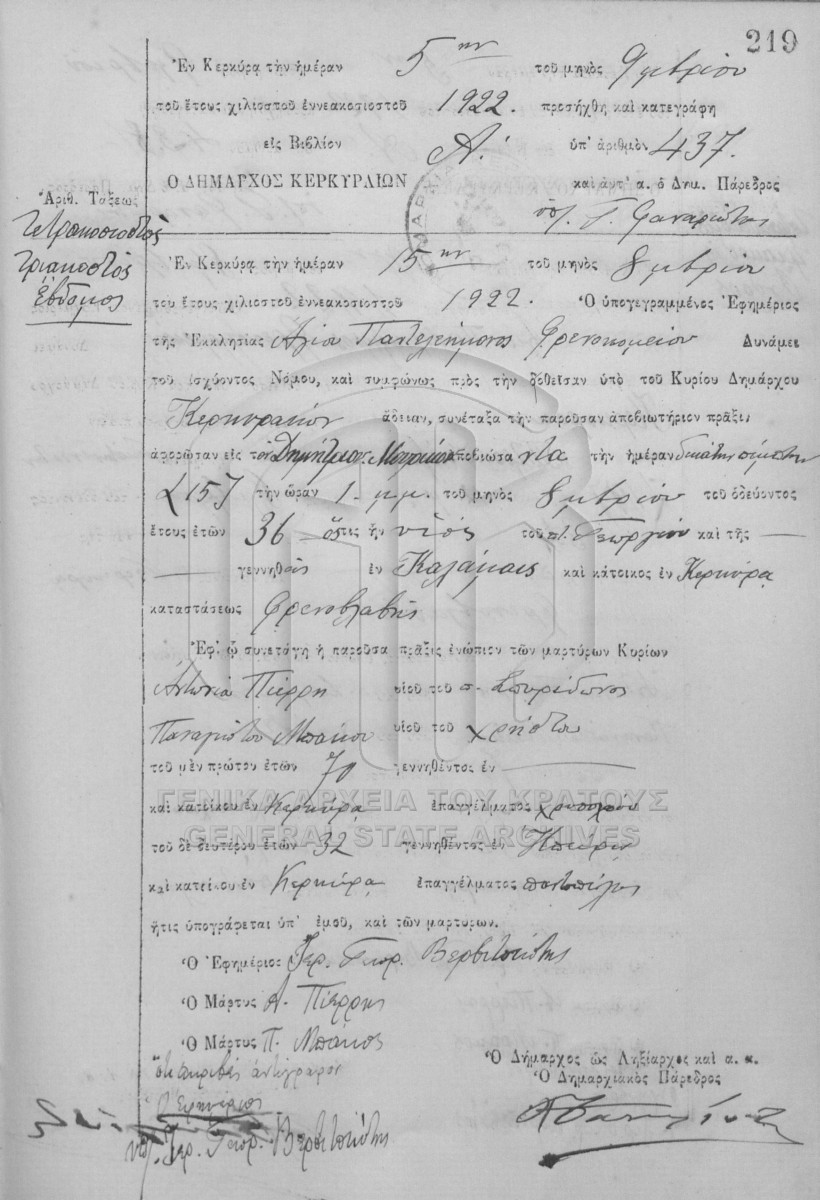 219
Ἐν Κερκύρᾳ τὴν ἡμέραν 5ην τοῦ μηνὸς 9μβρίου
τοῦ ἔτους χιλιοστοῦ ἐννεακοσιοστοῦ 1922. προσήχθη καὶ κατεγράφη
εἰς Βιβλίον Α! ὑπ' ἀριθμὸν 437.
Ο ΔΗΜΑΡΧΟΣ ΚΕΡΚΥΡΑΙΩΝ καὶ ἀντ' α. ὁ Δημ. Πάρεδρος
Ἀριθ. Τάξεως
Τετρακοσιοστὸς
τριακοστὸς
ἕβδομος
ὑπ. Γ. Φαναριώτης
Ἐν Κερκύρᾳ τὴν ἡμέραν 15ην τοῦ μηνὸς 8μβρίου
του ἔτους χιλιοστοῦ ἐννεακοσιοστοῦ 1922. Ὁ ὑπογεγραμμένος Ἐφημέριος
τῆς Ἐκκλησίας Ἁγίου Παντελεήμονος Φρενοκομείου Δυνάμει
τοῦ ἰσχύοντος Νόμου, καὶ συμφώνως πρὸς τὴν δοθεῖσαν ὑπὸ τοῦ Κυρίου Δημάρχου
Κερκυραίων ἄδειαν, συνέταξα τὴν παροῦσαν ἀποβιωτήριον πρᾶξιν
ἀφορῶσαν εἰς τον Δημήτριον ἀποβιώσα ντα τὴν ἡμέραν δεκάτην πέμπτην
(15) τὴν ὥραν 1 μ.μ. τοῦ μηνὸς 8μβρίου τοῦ ὁδεύοντος
ἔτους ἐτῶν 36 ὅστις ἦν υἱὸς τοῦ π. Γεωργίου καὶ τῆς —
— γεννηθεὶς ἐν Καλάμαις καὶ κάτοικος ἐν Κερκύρᾳ
καταστάσεως φρενοβλαβὴς
Ἐφ' ᾧ συνετάγη ἡ παροῦσα πρᾶξις ἐνώπιον τῶν μαρτύρων Κυρίων
Ἀντωνίου Πιέρρη υἱοῦ τοῦ π. Σπυρίδωνος
Παναγιώτου Μπάκου υἱοῦ τοῦ Χρήστου
τοῦ μὲν πρώτου ἐτῶν 70 γεννηθέντος ἐν —
καὶ κατοίκου ἐν Κερκύρᾳ ἐπαγγέλματος χρυσοχόου
ΓΕΝΙΚΑ ΑΡΧΕΙΑ ΤΟΥ ΚΡΑΤΟΥΣ
GENERAL STATE ARCHIVES
τοῦ δὲ δευτέρου ἐτῶν 32 γεννηθέντος ἐν Ἠπείρῳ
καὶ κατοίκου ἐν Κερκύρᾳ ἐπαγγέλματος παντοπώλης
ἥτις ὑπογράφεται ὑπ' ἐμοῦ, καὶ τῶν μαρτύρων.
Ὁ Ἐφημέριος Ἱερ. Γεωρ. Βερβιτσιώτης
Ὁ Μάρτυς Α. Πιέρρης
Ὁ Μάρτυς Π. Μπάκος
Ὅτι ἀκριβὲς ἀντίγραφον
Ὁ Ἐφημέριος
ὑπ. Ἱερ. Γεωρ. Βερβιτσιώτης
Ὁ Δήμαρχος ὡς Ληξίαρχος καὶ α. α.
Ὁ Δημαρχιακὸς Πάρεδρος